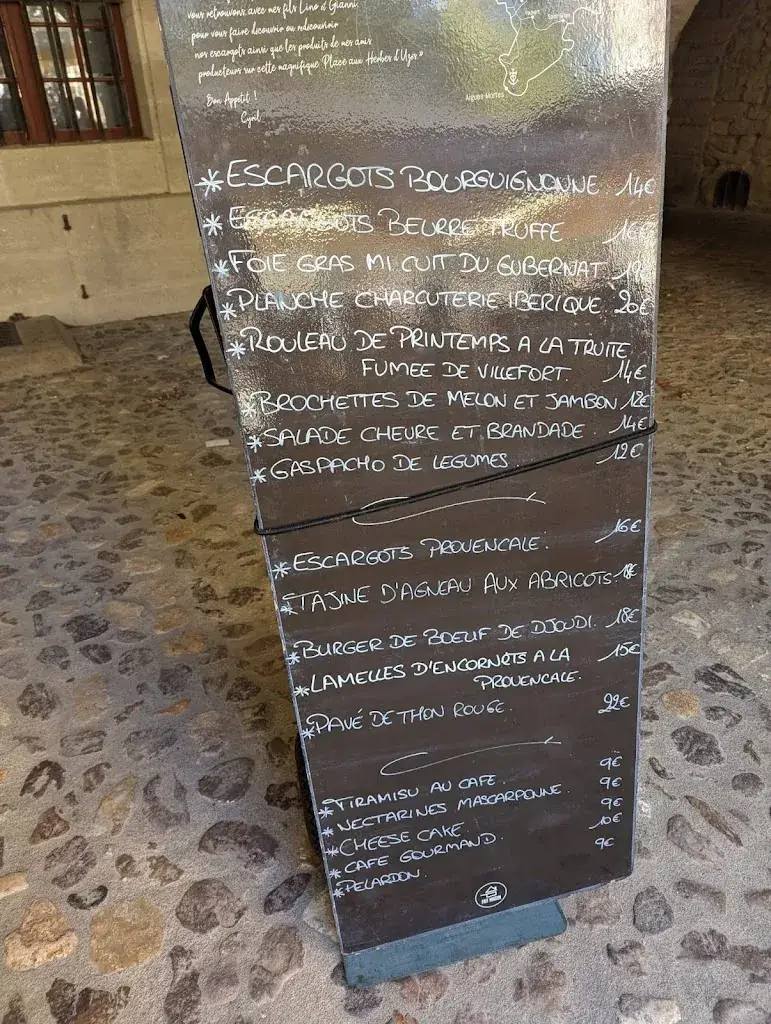 vous retrouvons avec mes fils Lino & Gianni
pour vous faire découvrir ou redécouvrir
nos escargots ainsi que les produits de mes amis
producteurs sur cette magnifique Place aux Herbes d'Uzès »
Bon Appetit !
Cyril
Aigues-Mortes
* ESCARGOTS BOURGUIGNONNE. 14€
* ESCARGOTS BEURRE TRUFFE 16€
* FOIE GRAS MI CUIT DU GUBERNAT 19
* PLANCHE CHARCUTERIE IBERIQUE 20€
* ROULEAU DE PRINTEMPS A LA TRUITE
FUMEE DE VILLEFORT. 14€
* BROCHETTES DE MELON ET JAMBON 12€
* SALADE CHEVRE ET BRANDADE 14€
* GASPACHO DE LEGUMES 12€
* ESCARGOTS PROVENCALE. 16€
* TAJINE D'AGNEAU AUX ABRICOTS. 18€
* BURGER DE BOEUF DE DJOUDI. 18€
* LAMELLES D'ENCORNETS A LA 15€
PROVENCALE.
* PAVÉ DE THON ROUGE. 22€
* TIRAMISU AU CAFE. 9€
* NECTARINES MASCARPONNE. 9€
* CHEESE CAKE 9€
* CAFE GOURMAND. 10€
* PELARDON. 9€
FAIT MAISON